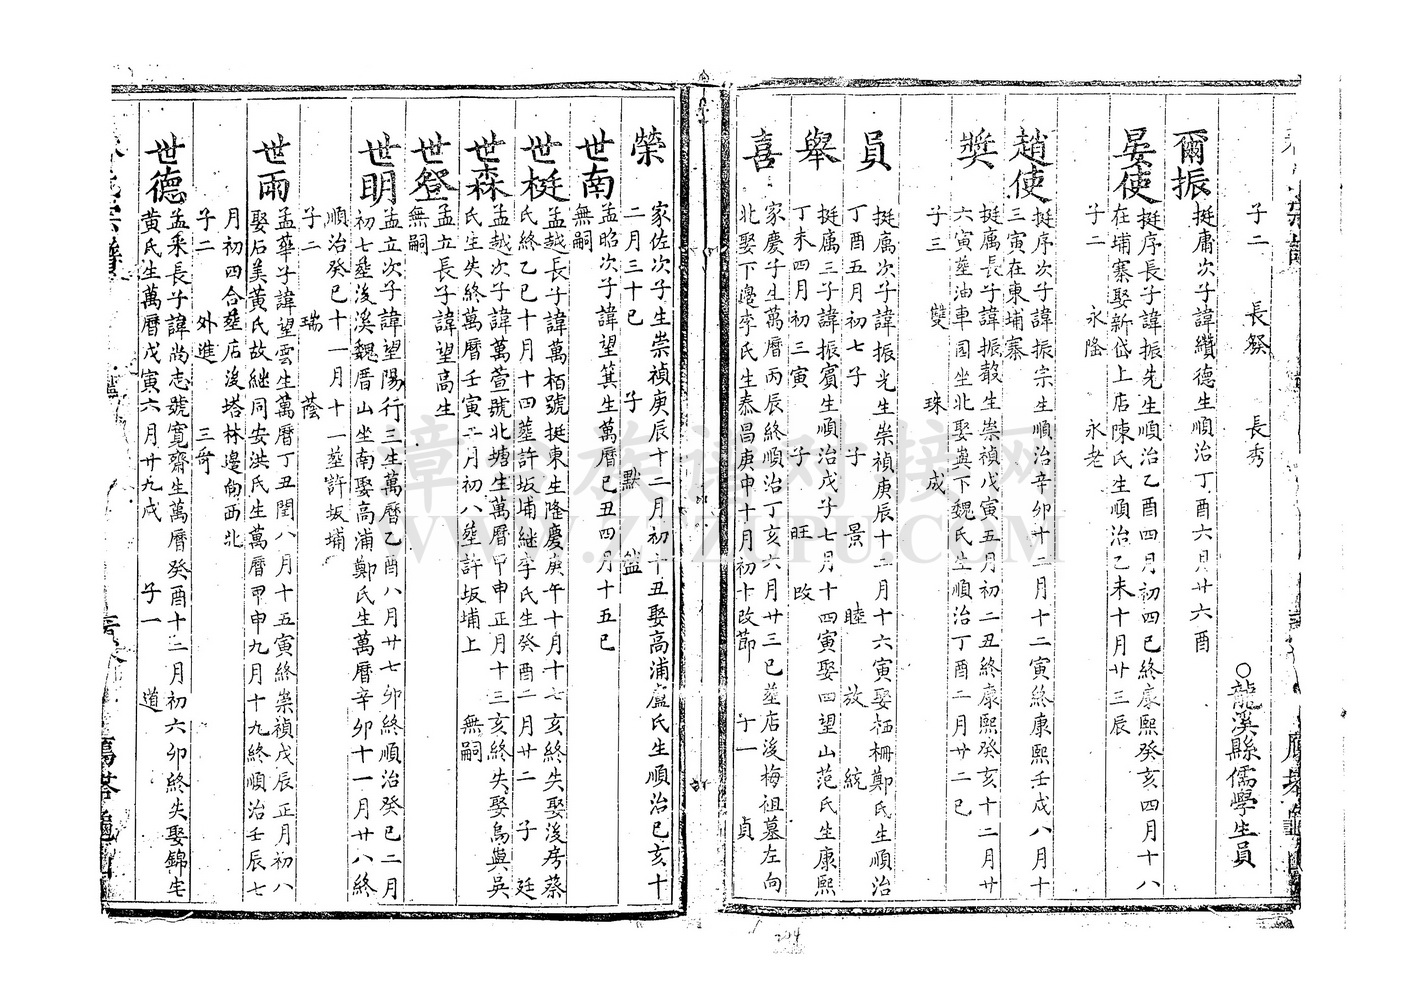 子二 長發 長秀
○龍溪縣儒學生員
爾振 挺庸次子諱纘德生順治丁酉六月廿六酉
晏使 挺序長子諱振先生順治乙酉四月初四巳終康熙癸亥四月十八
在埔寨娶新岱上店陳氏生順治乙未十月廿三辰
子二 永隆 永老
趙使 挺序次子諱振宗生順治辛卯廿二月十二寅終康熙壬戌八月十
三寅在東埔寨
獎 挺廣長子諱振穀生崇禎戊寅五月初二丑終康熙癸亥十二月廿
六寅塟油車園坐北娶崁下魏氏生順治丁酉二月廿二巳
子三 雙 珠 成
員 挺廣次子諱振光生崇禎庚辰十二月十六寅娶栖柵鄭氏生順治
丁酉五月初七子 子 景 睦 放 統
舉 挺廣三子諱振賓生順治戊子七月十四寅娶四望山范氏生康熙
丁未四月初三寅 子 旺 改
喜 家慶子生萬曆丙辰終順治丁亥六月廿三巳塟店後梅祖墓左向
北娶下邊李氏生泰昌庚申十月初十改節 子一 貞
榮 家佐次子生崇禎庚辰十二月初十丑娶高浦盧氏生順治己亥十
二月三十巳 子 默 鎰
世南 孟昭次子諱望箕生萬曆己丑四月十五巳
無嗣
世梃 孟越長子諱萬栢號挺東生隆慶庚午十月十七亥終失娶後房蔡
氏終乙巳十月十四塟許坂埔継李氏生癸酉二月廿二 子 廷
世森 孟越次子諱萬萱號北塘生萬曆甲申正月十三亥終失娶烏輿吳
氏生失終萬曆壬寅二月初八塟許坂埔上 無嗣
世登 孟立長子諱望高生
無嗣
世明 孟立次子諱望陽行三生萬曆乙酉八月廿七卯終順治癸巳二月
初七塟後溪魏厝山坐南娶高浦鄭氏生萬曆辛卯十一月廿八終
順治癸巳十一月十一塟許坂埔
子二 瑞 蔭
世雨 孟華子諱望雲生萬曆丁丑閏八月十五寅終崇禎戊辰正月初八
娶石美黃氏故継同安洪氏生萬曆甲申九月十九終順治壬辰七
月初四合塟店後塔林邊向西北
子二 外進 三奇
世德 孟釆長子諱尚志號寬齋生萬曆癸酉十二月初六卯終失娶錦宅
黃氏生萬曆戊寅六月廿九戌 子一 道
萬塔
漳台族谱对接网
WWW.ZTZUPU.COM
204